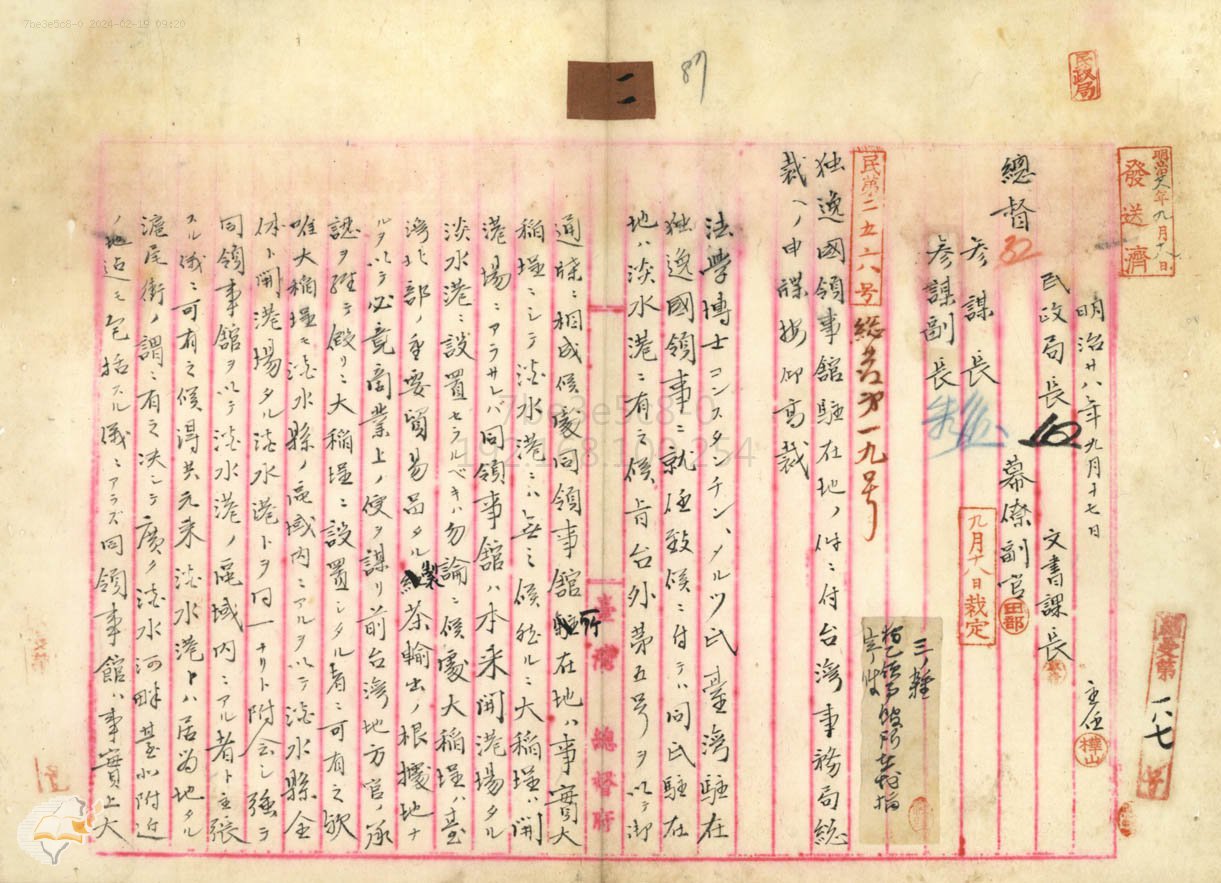 7be3e5c8-0 2024-02-19 09:20
二
87
民政局
明治廿八年九月十八日
發送濟
明治廿八年九月十七日
主任
樺山
民政局長
文書課長
總督
幕僚副官
田部
參謀長
參謀副長
九月十八日裁定
民第二五六八号
總督第一九号
三ノ雜
独逸國領事館駐在地ノ件ニ付台湾事務局総
裁ヘノ申牒按仰高裁
法學博士コンスタンチン、メルツ氏臺湾駐在
独逸國領事ニ就任致候ニ付テハ同氏駐在
地ハ淡水港ニ有之候旨台外第五号ヲ以テ御
通牒ニ相成候處同領事館所在地ハ事實大
稲埕ニシテ淡水港ニハ無之候然ルニ大稲埕ハ開
港場ニアラサレハ同領事館ハ本来開港場タル
淡水港ニ設置セラルベキハ勿論ニ候處大稲埕ハ臺
湾北部ノ重要貿易品タル製茶輸出ノ根據地ナ
ルヲ以テ必竟商業上ノ便ヲ謀リ前台湾地方官ノ承
認ヲ經テ假リニ大稲埕ニ設置シタル者ニ可有之歟
唯大稲埕モ淡水縣ノ區域内ニアルヲ以テ淡水縣全
体ト開港場タル淡水港トヲ同一ナリト附会シ強テ
同領事館ヲ以テ淡水港ノ區域内ニアル者ト主張
スル儀ニ可有之候得共元来淡水港トハ居留地タル
滬尾街ノ謂ニ有之決シテ廣ク淡水河畔臺北附近
ノ地迄モ包括スル儀ニアラズ同領事館ハ事實上大
臺灣總督府
一八七
7be3e5c8-0
192.168.100.254